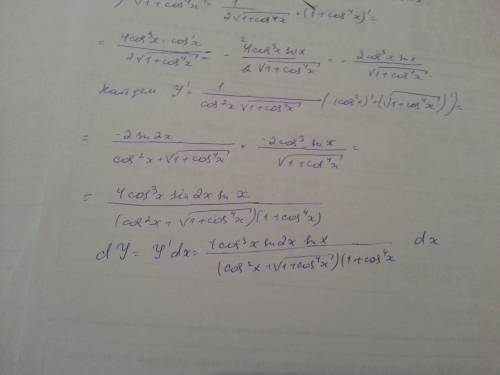 √(1+cos⁴x)' = 1/(2√(1+cos⁴x)) · (1+cos⁴x)' =
= (4cos³x · cos'x)/(2√(1+cos⁴x)) = - (4cos³x sin x)/(2√(1+cos⁴x)) = - (2cos³x sin x)/√(1+cos⁴x).
Найдем y' = 1/(cos²x √(1+cos⁴x)) ((cos²x)' + (√(1+cos⁴x))') =
= (-2 sin 2x)/(cos²x + √(1+cos⁴x)) · (-2cos³ sin x)/√(1+cos⁴x) =
= (4cos³x sin2x sin x)/((cos²x + √(1+cos⁴x))(1+cos⁴x))
dy = y'dx = (4cos³x sin2x sin x)/((cos²x + √(1+cos⁴x))(1+cos⁴x) dx